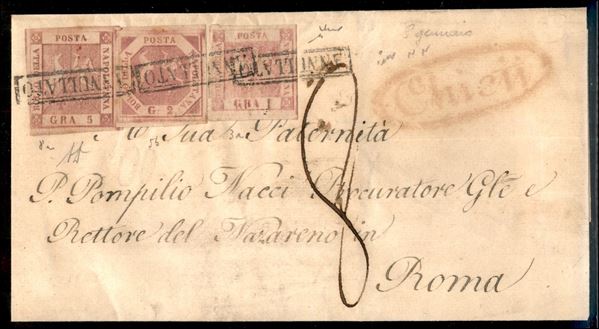 POSTA
BOLLO DELLA NAPOLETANA
GRA 5
POSTA
G. 2
POSTA
NAPOLETANA
GRA 1
ANNULLATO
ANNULLATO
ANNULLATO
3 gennaio
8
A Sua Paternità
P. Pompilio Nacci Procuratore Gle e
Rettore del Nazareno in
Roma